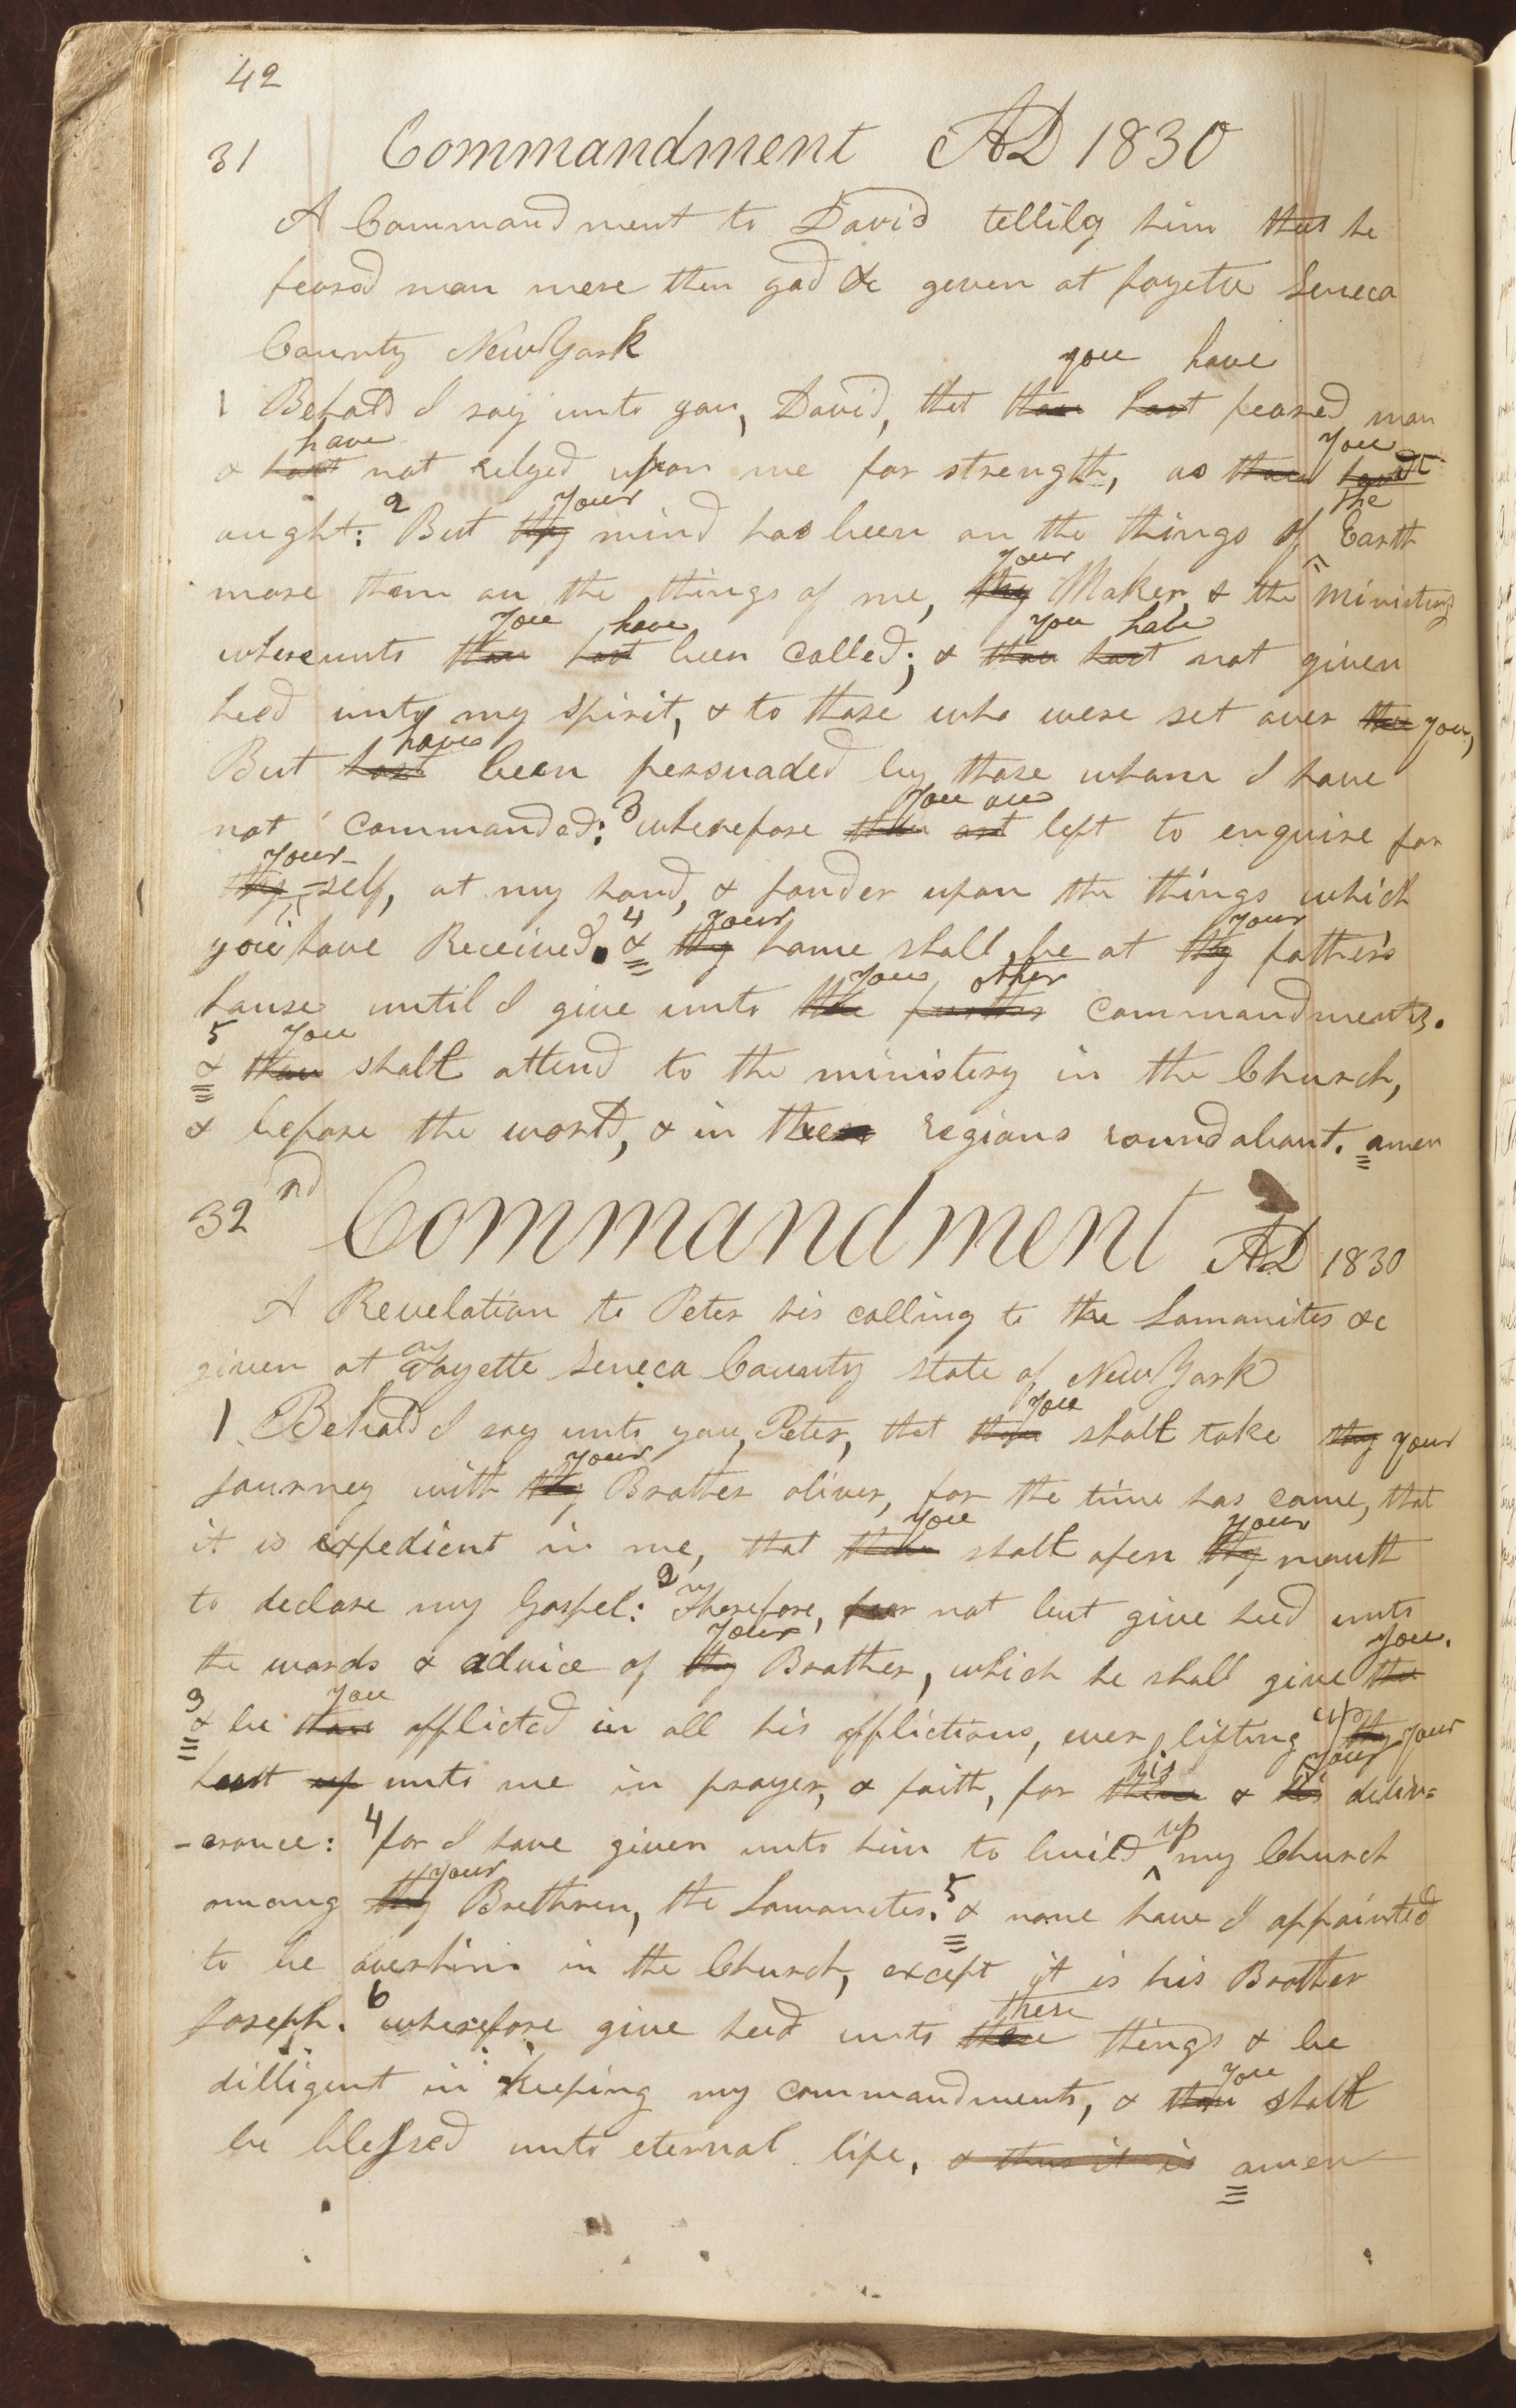 42
31 Commandment AD 1830
A Commandment to David tellilg him that he
feared man more then god &c geven at fayette Seneca
County New York
you have
1 Behold I say unto you, David, that thou hast feared man
have you
& hast not relyed upon me for strength, as thou
2 your the
aught: But thy mind has been on the things of Earth
your
more then on the things of me, thy Maker, & the ministery
you have you have
whereunto thou hast been called; & thou hast not given
heed unto my spirit, & to those who were set over thee you,
have
But hast been persuaded by those whom I have
3 you are
not commanded: wherefore thou art left to enquire for
your-
thy-self, at my hand, & ponder upon the things which
4 your your
you have Received. & thy home shall be at thy father's
you other
house until I give unto thee further commandments.
5 you
& thou shalt attend to the ministery in the Church,
& before the world, & in the regions round about. amen
32nd Commandment AD 1830
A Revelation to Peter his calling to the Lamanites &c
given at Fayette Seneca County state of New York
you
1 Behold I say unto you, Peter, that thou shalt take thy your
your
Journey with thy Brother oliver, for the time has come, that
you your
it is expedient in me, that thou shalt open thy mouth
2
to declare my Gospel: therefore, fear not but give heed unto
your you.
the words & advice of thy Brother, which he shall give thee
3 you up
& be thou afflicted in all his afflictions, ever lifting thy your
his your
heart up unto me in prayer, & faith, for thine & his deliv=
4 up
-erance: for I have given unto him to build my Church
your 5
among thy Brethren, the Lamanites. & none have I appointed
to be over him in the Church, except it is his Brother
6 these
Joseph. wherefore give heed unto these things & be
you
dilligent in keeping my commandments, & thou shalt
be blessed unto eternal life, & thus it is amen